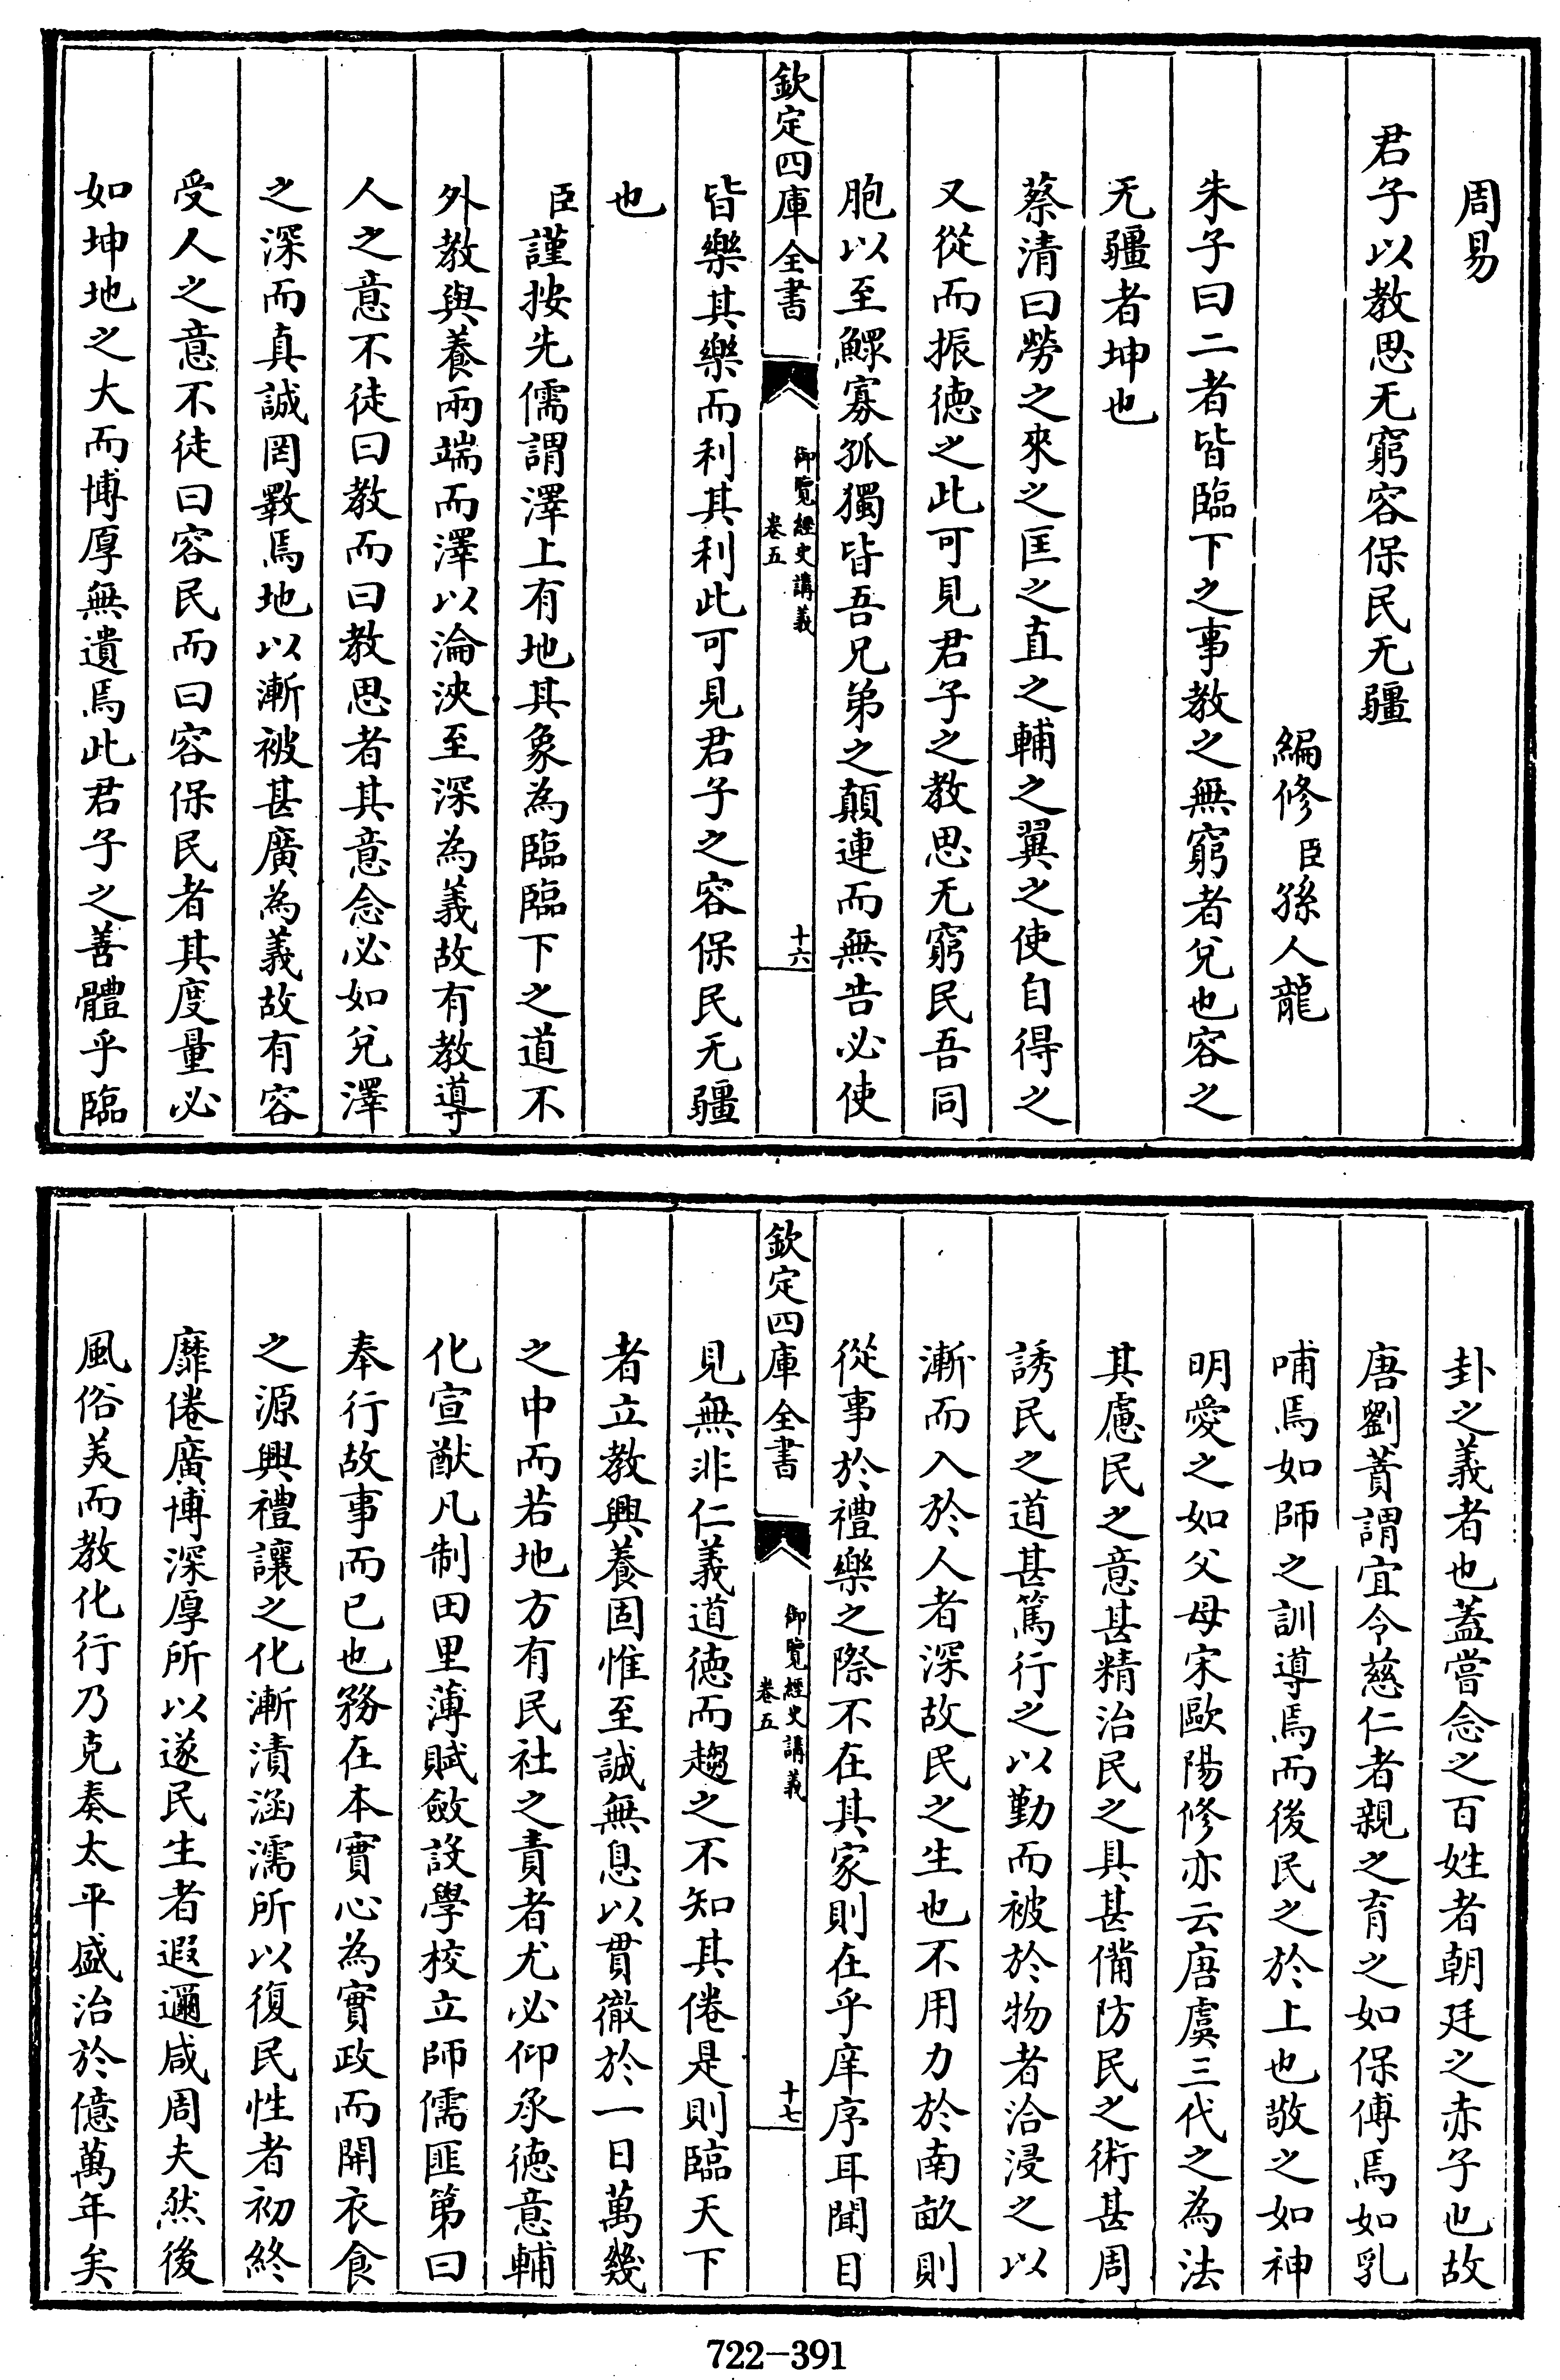 周易
君子以教思无窮容保民无疆
編修臣孫人龍
朱子曰二者皆臨下之事教之無窮者兌也容之
无疆者坤也
蔡清曰勞之來之匡之直之輔之翼之使自得之
又從而振德之此可見君子之教思无窮民吾同
胞以至鰥寡孤獨皆吾兄弟之顛連而無告必使
欽定四庫全書
御覽經史講義
卷五
十六
皆樂其樂而利其利此可見君子之容保民无疆
也
臣謹按先儒謂澤上有地其象為臨臨下之道不
外教與養兩端而澤以淪浹至深為義故有教導
人之意不徒曰教而曰教思者其意念必如兌澤
之深而真誠罔斁焉地以漸被甚廣為義故有容
受人之意不徒曰容民而曰容保民者其度量必
如坤地之大而博厚無遺焉此君子之善體乎臨
卦之義者也蓋嘗念之百姓者朝廷之赤子也故
唐劉蕡謂宜令慈仁者親之育之如保傅焉如乳
哺焉如師之訓導焉而後民之於上也敬之如神
明愛之如父母宋歐陽修亦云唐虞三代之為法
其慮民之意甚精治民之具甚備防民之術甚周
誘民之道甚篤行之以勤而被於物者洽浸之以
漸而入於人者深故民之生也不用力於南畝則
從事於禮樂之際不在其家則在乎庠序耳聞目
欽定四庫全書
御覽經史講義
卷五
十七
見無非仁義道德而趨之不知其倦是則臨天下
者立教興養固惟至誠無息以貫徹於一日萬幾
之中而若地方有民社之責者尤必仰承德意輔
化宣猷凡制田里薄賦斂設學校立師儒匪第曰
奉行故事而已也務在本實心為實政而開衣食
之源興禮讓之化漸漬涵濡所以復民性者初終
靡倦廣博深厚所以遂民生者遐邇咸周夫然後
風俗美而教化行乃克奏太平盛治於億萬年矣
722-391